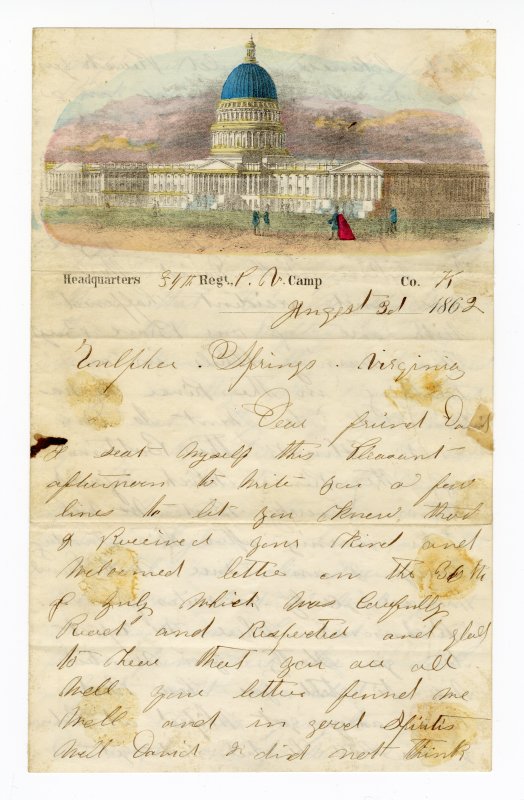 Headquarters 54th Regt. P. V. Camp Co. K
August 3d 1862
Sulpher Springs Virginia
Dear friend David
I seat myself this Pleasant
afternoon to write you a few
lines to let you know that
I Received your kind and
Welcomed letter on the 30th
of July which was Carfully
Read and Respected and glad
to hear that you are all
Well your letter found me
Well and in good Spirits
Well David I did not think